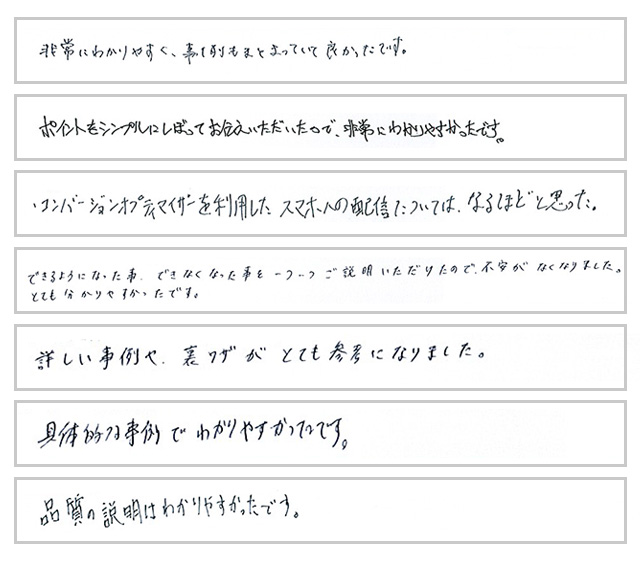 非常にわかりやすく、事例もまとまっていて良かったです。
ポイントをシンプルにしぼってお伝えいただいたので、非常にわかりやすかったです。
・コンバージョンオプティマイザーを利用したスマホへの配信については、なるほどと思った。
できるようになった事、できなくなった事を一つ一つご説明いただけたので、不安がなくなりました。
とても分かりやすかったです。
詳しい事例や、裏ワザがとても参考になりました。
具体的な事例でわかりやすかったです。
品質の説明はわかりやすかったです。